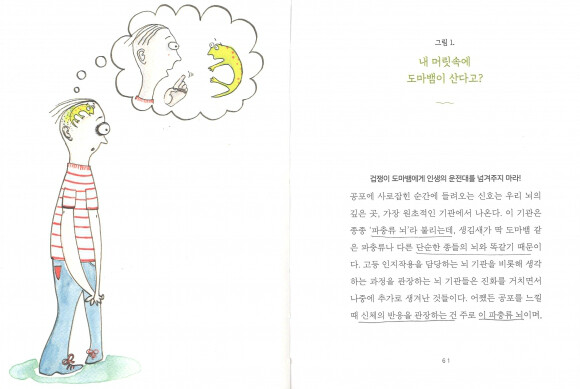 그림 1.
내 머릿속에
도마뱀이 산다고?
겁쟁이 도마뱀에게 인생의 운전대를 넘겨주지 마라!
공포에 사로잡힌 순간에 들려오는 신호는 우리 뇌의
깊은 곳, 가장 원초적인 기관에서 나온다. 이 기관은
종종 '파충류 뇌'라 불리는데, 생김새가 딱 도마뱀 같
은 파충류나 다른 단순한 종들의 뇌와 똑같기 때문이
다. 고등 인지작용을 담당하는 뇌 기관을 비롯해 생각
하는 과정을 관장하는 뇌 기관들은 진화를 거치면서
나중에 추가로 생겨난 것들이다. 어쨌든 공포를 느낄
때 신체의 반응을 관장하는 건 주로 이 파충류 뇌이며,
61